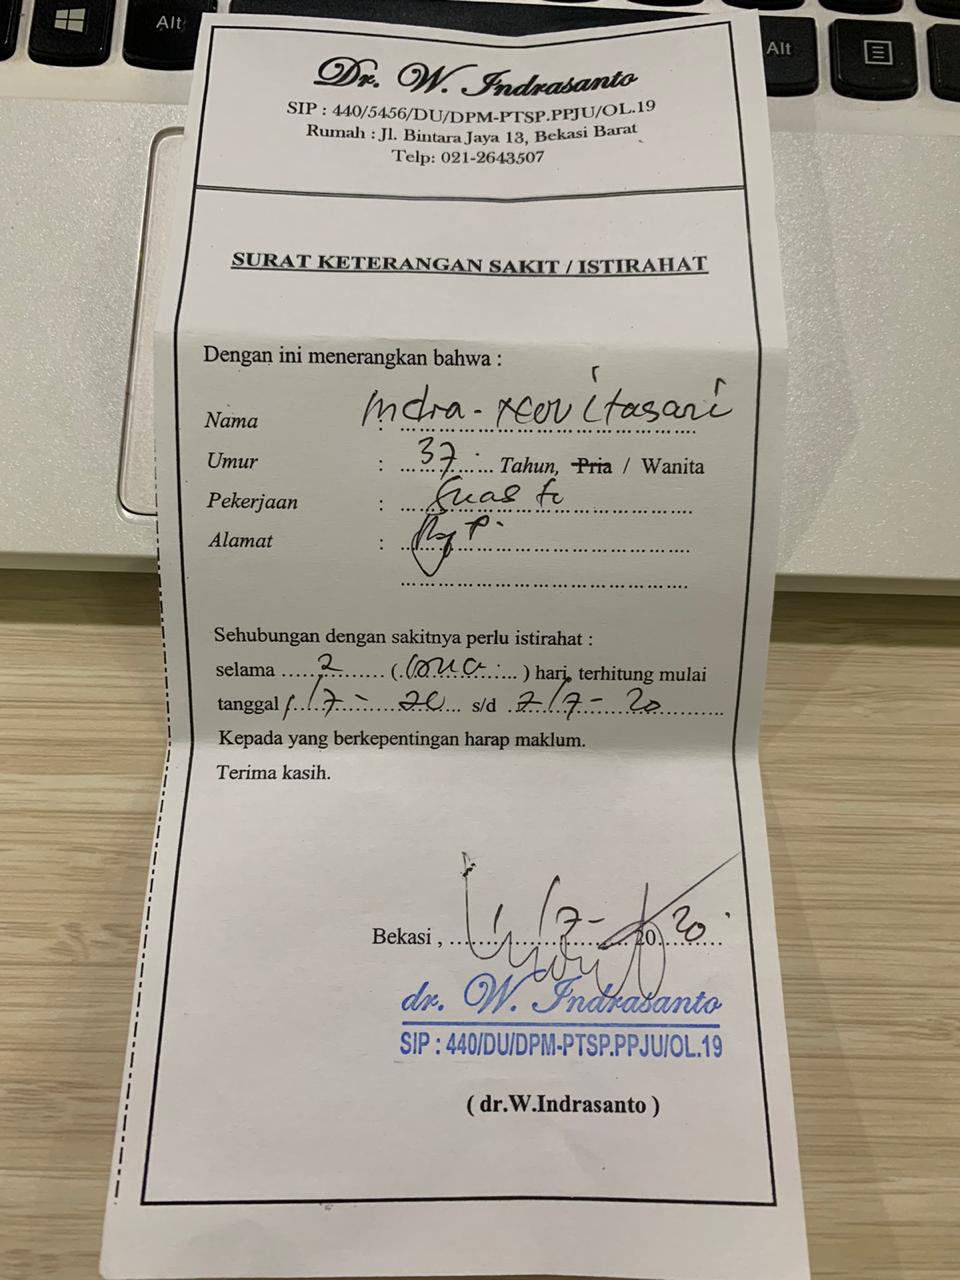 Alt
Alt
Dr. W. Indrasanto
SIP : 440/5456/DU/DPM-PTSP.PPJU/OL.19
Rumah : Jl. Bintara Jaya 13, Bekasi Barat
Telp: 021-2643507
SURAT KETERANGAN SAKIT / ISTIRAHAT
Dengan ini menerangkan bahwa :
Nama : Indra
Umur : 37 Tahun, Pria / Wanita
Pekerjaan :
Alamat :
Sehubungan dengan sakitnya perlu istirahat :
selama 2 ( ) hari, terhitung mulai
tanggal 1/7 - 20 s/d 2/7 - 20
Kepada yang berkepentingan harap maklum.
Terima kasih.
Bekasi , 1/7 - 20 20
dr. W. Indrasanto
SIP : 440/DU/DPM-PTSP.PPJU/OL.19
( dr.W.Indrasanto )